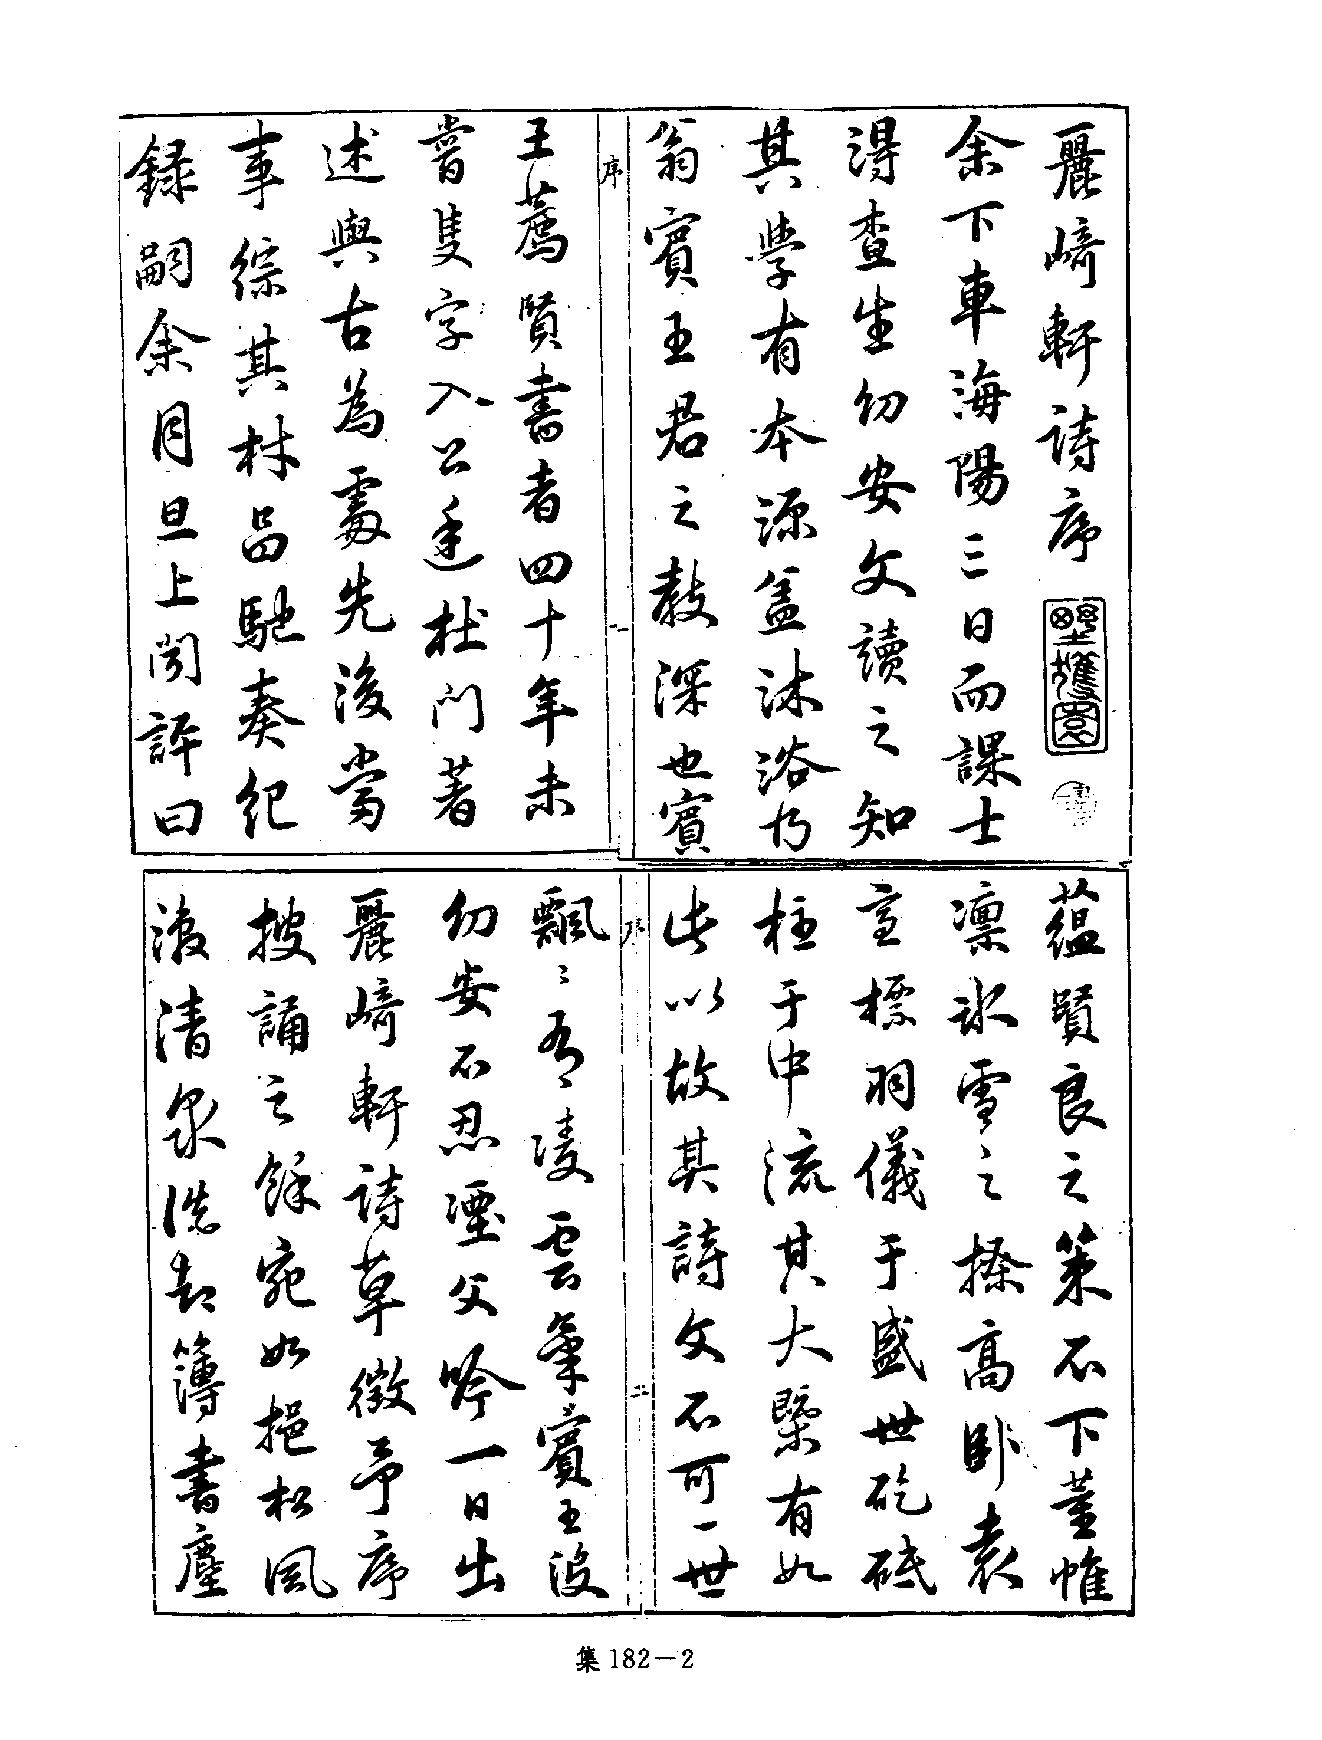 麗崎軒詩序
余下車海陽三日而課士
得查生幼安文讀之知
其學有本源蓋沐浴乃
翁賓王君之教深也賓
序
一
王薦賢書者四十年未
嘗隻字入公廷杜門著
述與古為處先後當
事綜其材品馳奏紀
錄嗣余月旦上聞許曰
蘊賢良之策不下董帷
凜冰雪之操高臥袁
室標羽儀于盛世砥
柱于中流其大槩有如
此以故其詩文不可一世
序
二
飄飄有凌雲氣賓王沒
幼安不忍湮父吟一日出
麗崎軒詩草徵予序
披誦之餘宛如挹松風
漱清泉洗却簿書塵
集182－2